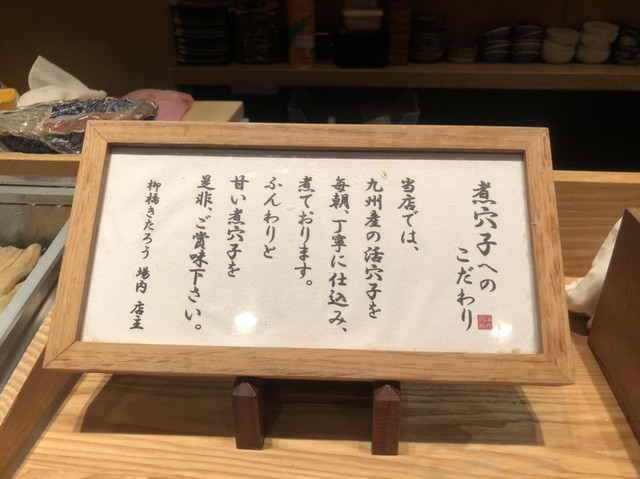 煮穴子への
こだわり
当店では、
九州産の活穴子を
毎朝、丁寧に仕込み、
煮ております。
ふんわりと
甘い煮穴子を
是非、ご賞味下さい。
柳橋きたろう 場内 店主